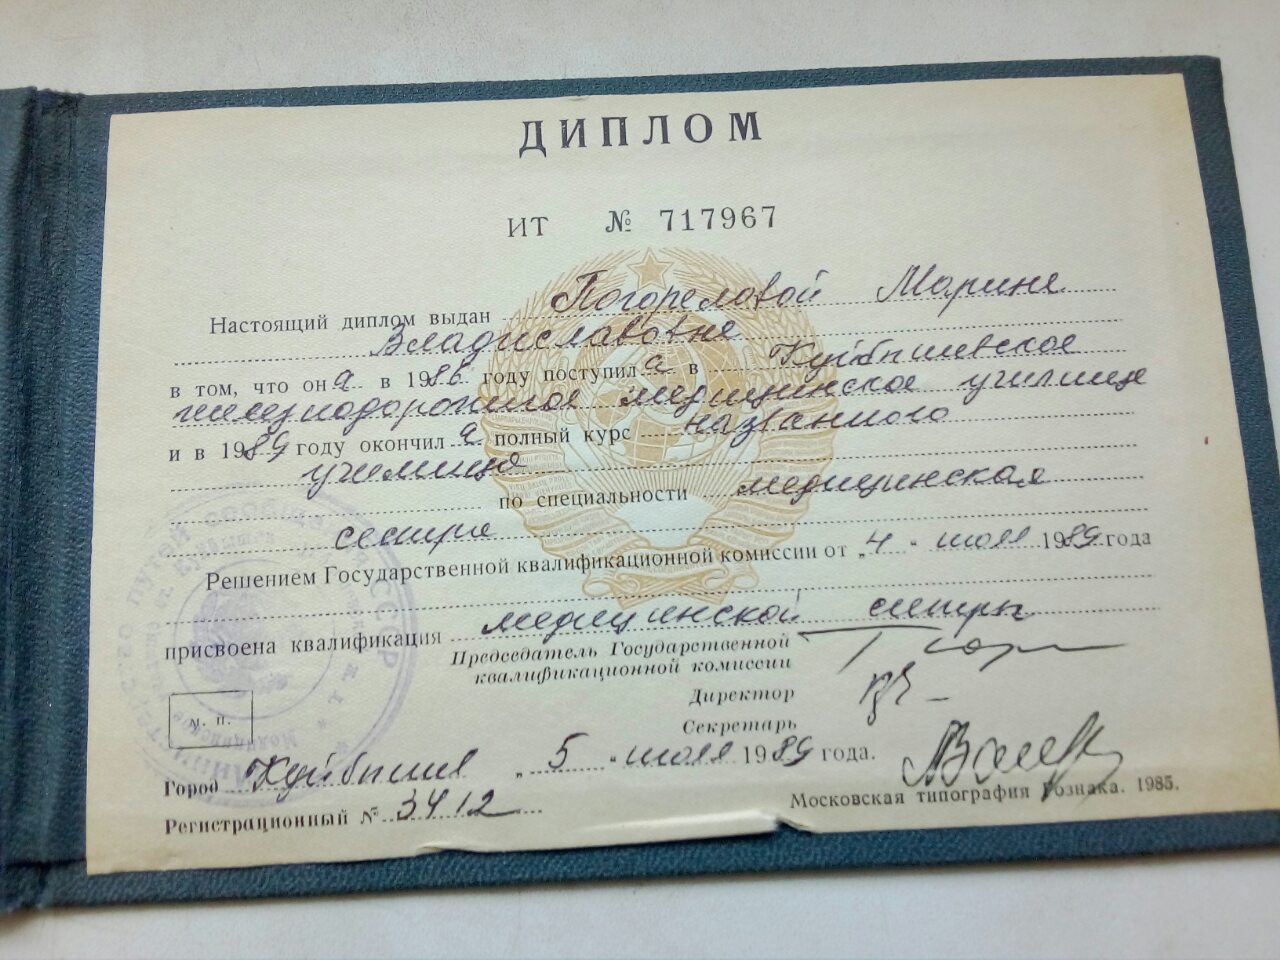 ДИПЛОМ
ИТ № 717967
Настоящий диплом выдан Погореловой Марине
Владиславовне
в том, что она в 1986 году поступила в Куйбышевское
железнодорожное медицинское училище
и в 1989 году окончила полный курс названного
училища
по специальности медицинская
сестра
Решением Государственной квалификационной комиссии от „4" июля 1989 года
присвоена квалификация медицинской сестры
Председатель Государственной
квалификационной комиссии
Директор
Секретарь
М. П.
Город Куйбышев „5" июля 1989 года.
Регистрационный № 3412
Московская типография Гознака. 1985.